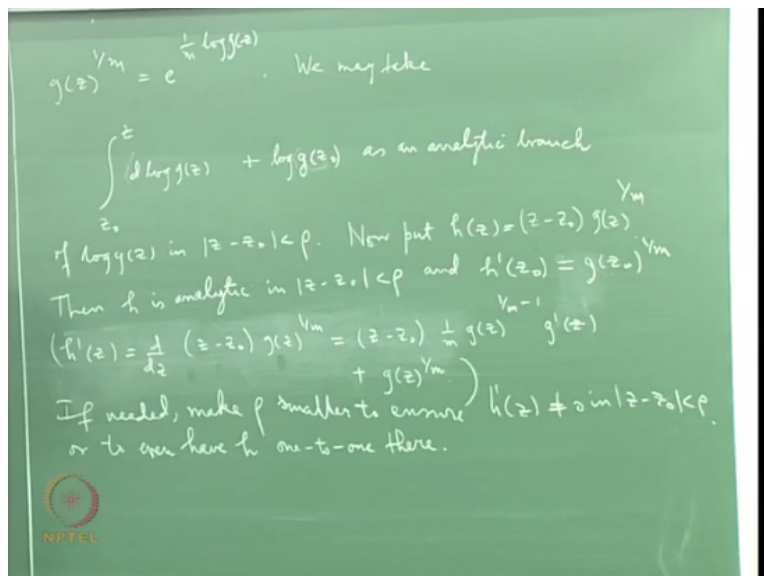 g(z)^{1/m} = e^{\frac{1}{m} log g(z)} . We may take
\int_{z_0}^{z} d log g(z) + log g(z_0) as an analytic branch
of log g(z) in |z - z_0| < ρ. Now put h(z) = (z - z_0) g(z)^{1/m}
Then h is analytic in |z - z_0| < ρ and h'(z_0) = g(z_0)^{1/m}
(h'(z) = \frac{d}{dz} (z - z_0) g(z)^{1/m} = (z - z_0) \frac{1}{m} g(z)^{1/m - 1} g'(z)
+ g(z)^{1/m})
If needed, make ρ smaller to ensure h'(z) ≠ 0 in |z - z_0| < ρ.
or to even have h one-to-one there.
NPTEL